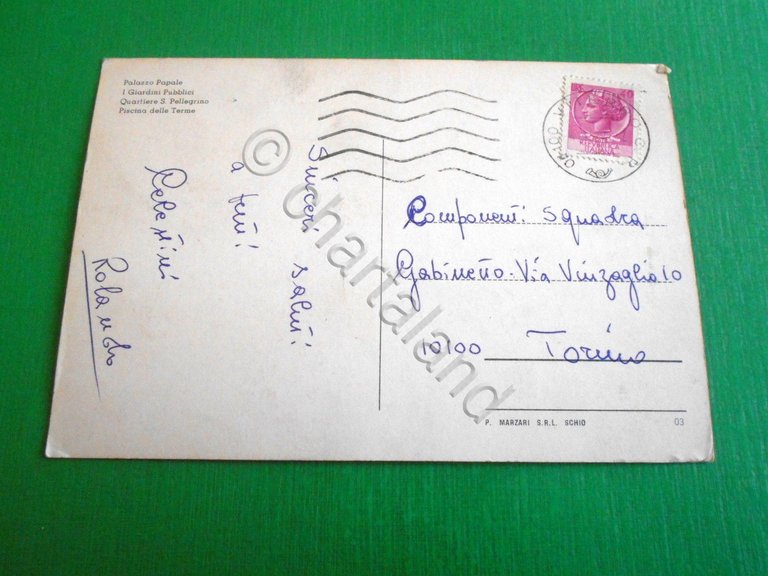 Palazzo Papale
I Giardini Pubblici
Quartiere S. Pellegrino
Piscina delle Terme
Sinceri saluti
a tutti
Celestini
Rolando
Componenti Squadra
Gabinetto - Via Vinzaglio 10
10100 Torino
P. MARZARI S.R.L. SCHIO 03
© chartaland